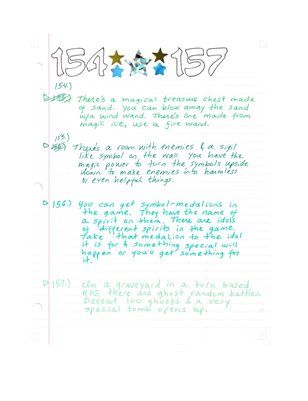 154 157
154.)
There's a magical treasure chest made
of sand. You can blow away the sand
w/a wind wand. There's one made from
magic ice, use a fire wand.
155.)
There's a room with enemies & a sigil
like symbol on the wall. You have the
magic power to turn the symbols upside
down to make enemies into harmless
or even helpful things.
156.) You can get symbol-medalions in
the game. They have the name of
a spirit on them. There are idols
of different spirits in the game.
Take that medalion to the idol
it is for & something special will
happen or you'll get something for
it.
157.) In a graveyard in a turn based
RPG there are ghost random battles.
Defeat 100 ghosts & a very
special tomb opens up.